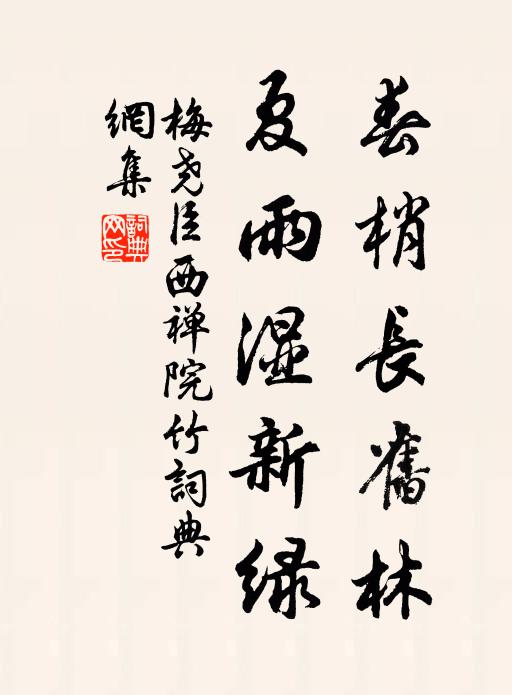 春梢長舊林
夏雨湿新緑
梅尧臣西禅院竹詞典
網集
詞典网印